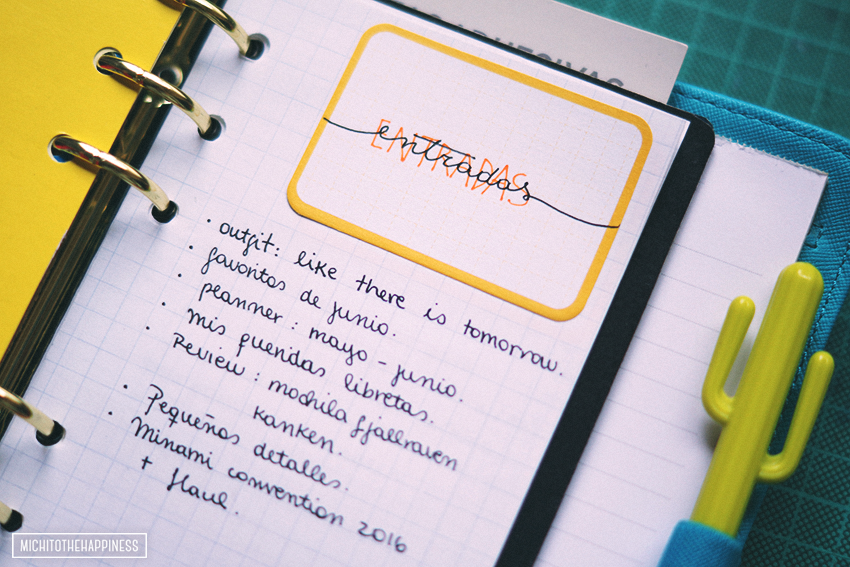 ADHESIVAS
ENTRADAS
entradas
· outfit: like there is tomorrow.
· favoritos de junio.
· planner: mayo - junio.
· mis queridas libretas.
· Review: mochila fjällraven
kanken.
· Pequeños detalles.
· Minami convention 2016
+ Haul.
MICHITOTHEHAPPINESS